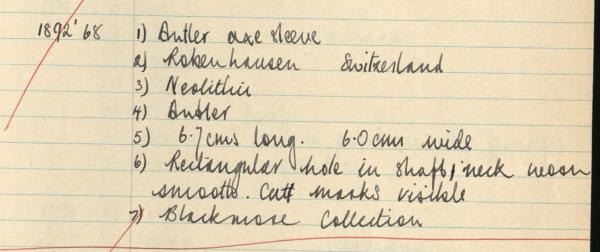 1892' 68 1) Antler axe sleeve
2) Robenhausen Switzerland
3) Neolithic
4) Antler
5) 6.7cms long. 6.0cms wide
6) Rectangular hole in shaft, neck worn
smooth. Cut marks visible
7) Blackmore Collection